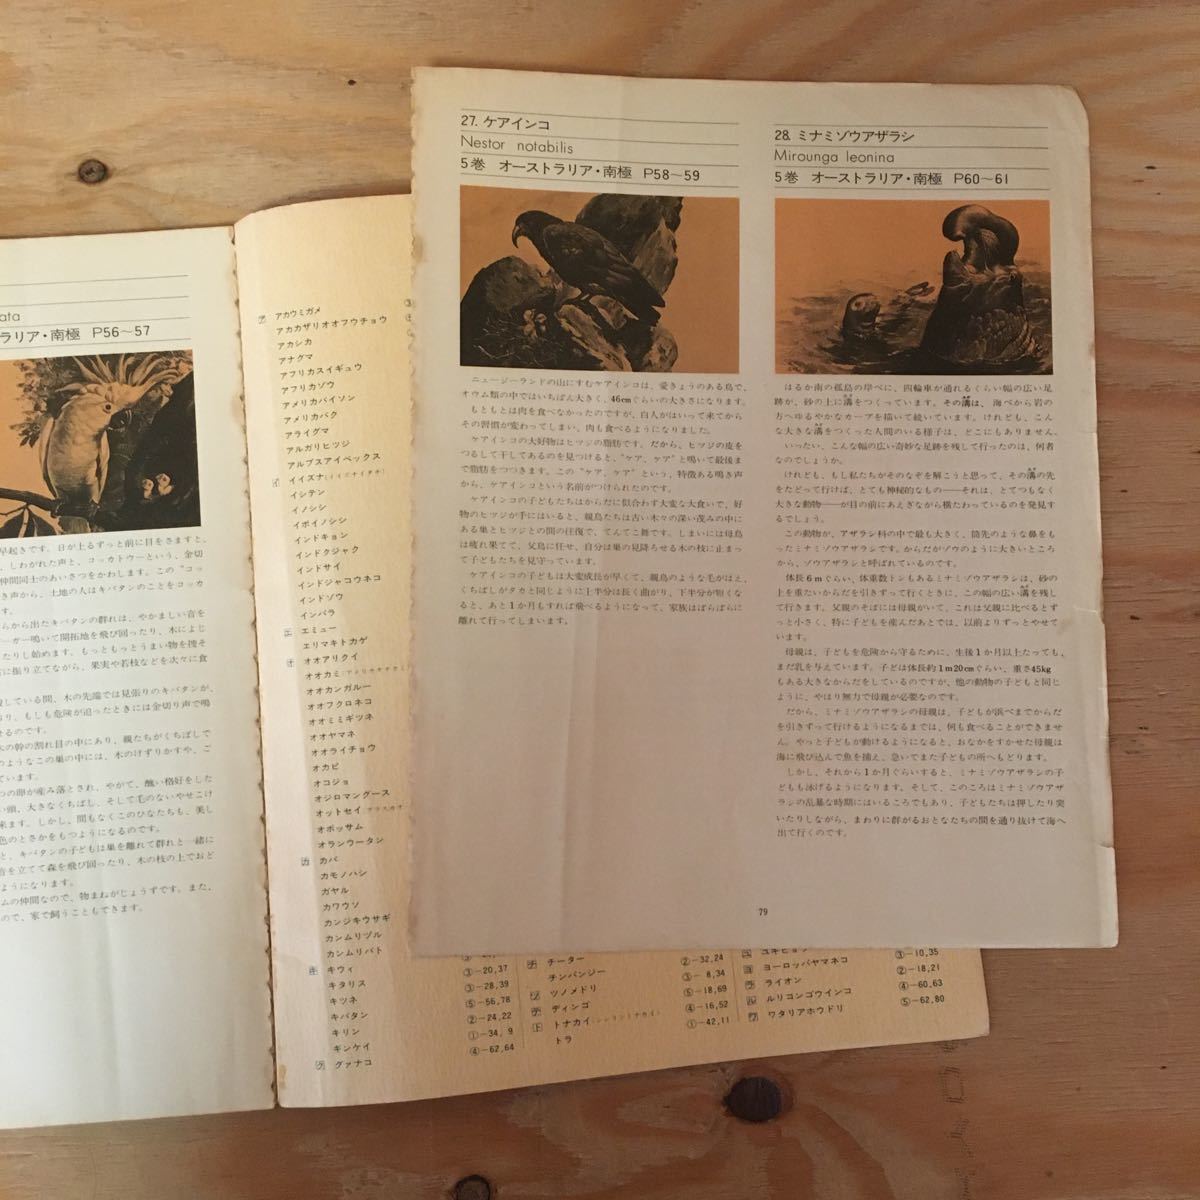 ata
ラリア・南極 P56〜57
早起きです。日が上るずっと前に目をさますと、
、しわがれた声と、コッカトウーという、金切
仲間同士のあいさつをかわします。この“コッ
き声から、土地の人はキバタンのことをコッカ
す。
らから出たキバタンの群れは、やかましい音を
ーガー鳴いて開拓地を飛び回ったり、木によじ
たりし始めます。もっともっとうまい物を捜そ
に振り立てながら、果実や若枝などを次々に食
している間、木の先端では見張りのキバタンが、
り、もしも危険が迫ったときには金切り声で鳴
せるのです。
木の幹の割れ目の中にあり、親たちがくちばしで
のようなこの巣の中には、木のけずりかすや、ご
ています。
つの卵が産み落とされ、やがて、醜い格好をした
い頭、大きなくちばし、そして毛のないやせこけ
来ます。しかし、間もなくこのひなたちも、美し
色のとさかをもつようになるのです。
と、キバタンの子どもは巣を離れて群れと一緒に
音を立てて森を飛び回ったり、木の枝の上でおど
ようになります。
ムの仲間なので、物まねがじょうずです。また、
ので、家で飼うこともできます。
ア アカウミガメ
アカカザリオオフウチョウ
アカシカ
アナグマ
アフリカスイギュウ
アフリカゾウ
アメリカバイソン
アメリカバク
アライグマ
アルガリヒツジ
アルプスアイベックス
イ イイズナ(イイズナイタチ)
イシテン
イノシシ
イボイノシシ
インドキョン
インドクジャク
インドサイ
インドジャコウネコ
インドゾウ
インパラ
エ エミュー
エリマキトカゲ
オ オオアリクイ
オオカミ
オオカンガルー
オオフクロネコ
オオミミギツネ
オオヤマネ
オオライチョウ
オカピ
オコジョ
オジロマングース
オットセイ
オポッサム
オランウータン
カ カバ
カモノハシ
ガヤル
カワウソ
カンジキウサギ
カンムリヅル
カンムリバト
キ キウィ ③-20,37
キタリス ③-28,39
キツネ ⑤-56,78
キバタン ②-24,22
キリン ①-34, 9
ギンケイ ④-62,64
グ グァナコ
チ チーター ②-32,24
チンパンジー ③- 8,34
ツ ツノメドリ ⑤-18,69
デ ディンゴ ④-16,52
ト トナカイ(シンリントナカイ) ①-42,11
トラ
ユ ユキヒョウ ③-10,35
ヨ ヨーロッパヤマネコ ②-18,21
ラ ライオン ④-60,63
ル ルリコンゴウインコ ⑤-62,80
ワ ワタリアホウドリ
27. ケアインコ
Nestor notabilis
5巻 オーストラリア・南極 P58〜59
ニュージーランドの山にすむケアインコは、愛きょうのある鳥で、
オウム類の中ではいちばん大きく、46cmぐらいの大きさになります。
もともとは肉を食べなかったのですが、白人がはいって来てから
その習慣が変わってしまい、肉も食べるようになりました。
ケアインコの大好物はヒツジの脂肪です。だから、ヒツジの皮を
つるして干してあるのを見つけると、“ケア、ケア”と鳴いて最後ま
で脂肪をつつきます。この“ケア、ケア”という、特徴ある鳴き声
から、ケアインコという名前がつけられたのです。
ケアインコの子どもたちはからだに似合わず大変な大食いで、好
物のヒツジが手にはいると、親鳥たちは古い木々の深い茂みの中に
ある巣とヒツジとの間の往復で、てんてこ舞です。しまいには母鳥
は疲れ果てて、父鳥に任せ、自分は巣の見降ろせる木の枝に止まっ
て子どもたちを見守っています。
ケアインコの子どもは大変成長が早くて、親鳥のような毛がはえ、
くちばしがタカと同じように上半分は長く曲がり、下半分が短くな
ると、あと1か月もすれば飛べるようになって、家族はばらばらに
離れて行ってしまいます。
28. ミナミゾウアザラシ
Mirounga leonina
5巻 オーストラリア・南極 P60〜61
はるか南の孤島の岸べに、四輪車が通れるくらい幅の広い足
跡が、砂の上に溝をつくっています。その溝は、海べから岩の
方へゆるやかなカーブを描いて続いています。けれども、こん
な大きな溝をつくった人間のいる様子は、どこにもありません。
いったい、こんな幅の広い奇妙な足跡を残して行ったのは、何者
なのでしょうか。
けれども、もし私たちがそのなぞを解こうと思って、その溝の先
をたどって行けば、とても神秘的なもの──それは、とてつもなく
大きな動物──が目の前にあえぎながら横たわっているのを発見す
るでしょう。
この動物が、アザラシ科の中で最も大きく、筒先のような鼻をも
ったミナミゾウアザラシです。からだがゾウのように大きいところ
から、ゾウアザラシと呼ばれているのです。
体長6mぐらい、体重数トンもあるミナミゾウアザラシは、砂の
上を重たいからだを引きずって行くときに、この幅の広い溝を残し
て行きます。父親のそばには母親がいて、これは父親に比べるとず
っと小さく、特に子どもを産んだあとでは、以前よりずっとやせて
います。
母親は、子どもを危険から守るために、生後1か月以上たっても、
まだ乳を与えています。子どは体長約1m20cmぐらい、重さ45kg
もある大きなからだをしているのですが、他の動物の子どもと同じ
ように、やはり無力で母親が必要なのです。
だから、ミナミゾウアザラシの母親は、子どもが浜べまでからだ
を引きずって行けるようになるまでは、何も食べることができませ
ん。やっと子どもが動けるようになると、おなかをすかせた母親は
海に飛び込んで魚を捕え、急いでまた子どもの所へもどります。
しかし、それから1か月ぐらいすると、ミナミゾウアザラシの子
どもも泳げるようになります。そして、このころはミナミゾウアザ
ラシの乱暴な時期にはいるころでもあり、子どもたちは押したり突
いたりしながら、まわりに群がるおとなたちの間を通り抜けて海へ
出て行くのです。
79